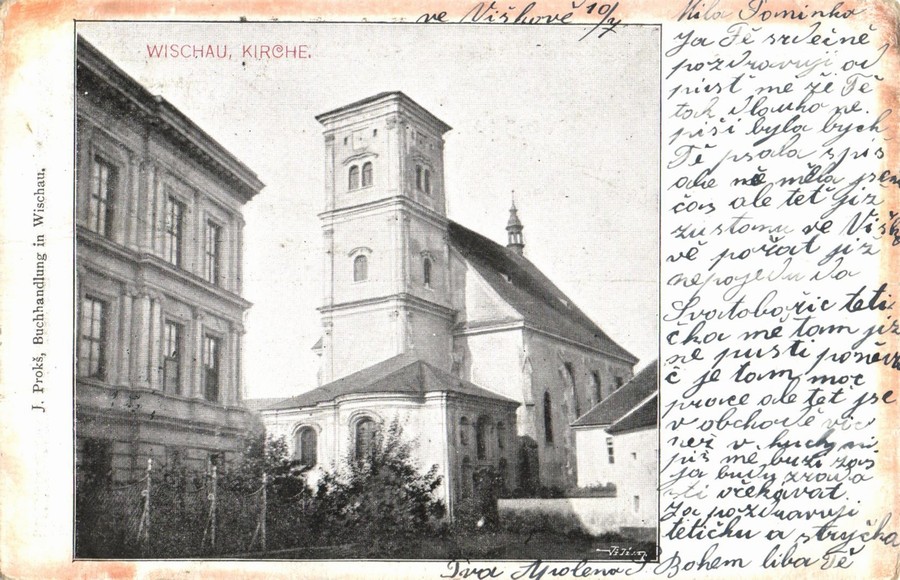 ve Viškově 10/7
WISCHAU, KIRCHE.
J. Prokš, Buchhandlung in Wischau.
Milá Tominko
Ja Tě srdečně
pozdravuji od
pust mě že Tě
tak dlouho ne
piši byla bych
Tě psala spis
ale ně měla jsem
čas ale teť již
zustanu ve Viško
vě pořát již
nepojedu do
Svatobořic teti
čka mě tam již
ne pusti poněva
č je tam moc
prace ale teť jse
v obchodě vic
než v kuchyni
piš mě buzi zas
ja budu zrovna
ti včekavat.
Ja pozdravuji
tetičku a stryčka
S Bohem liba Tě
Tva Apolena